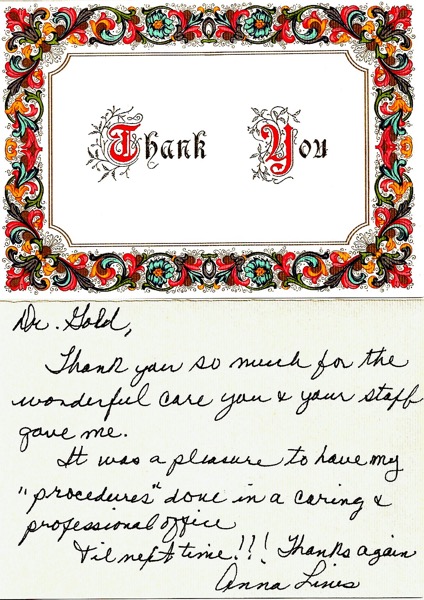 Thank You
Dr. Gold,
Thank you so much for the
wonderful care you & your staff
gave me.
It was a pleasure to have my
"procedures" done in a caring &
professional office
'Til next time!!! Thanks again
Anna Lines